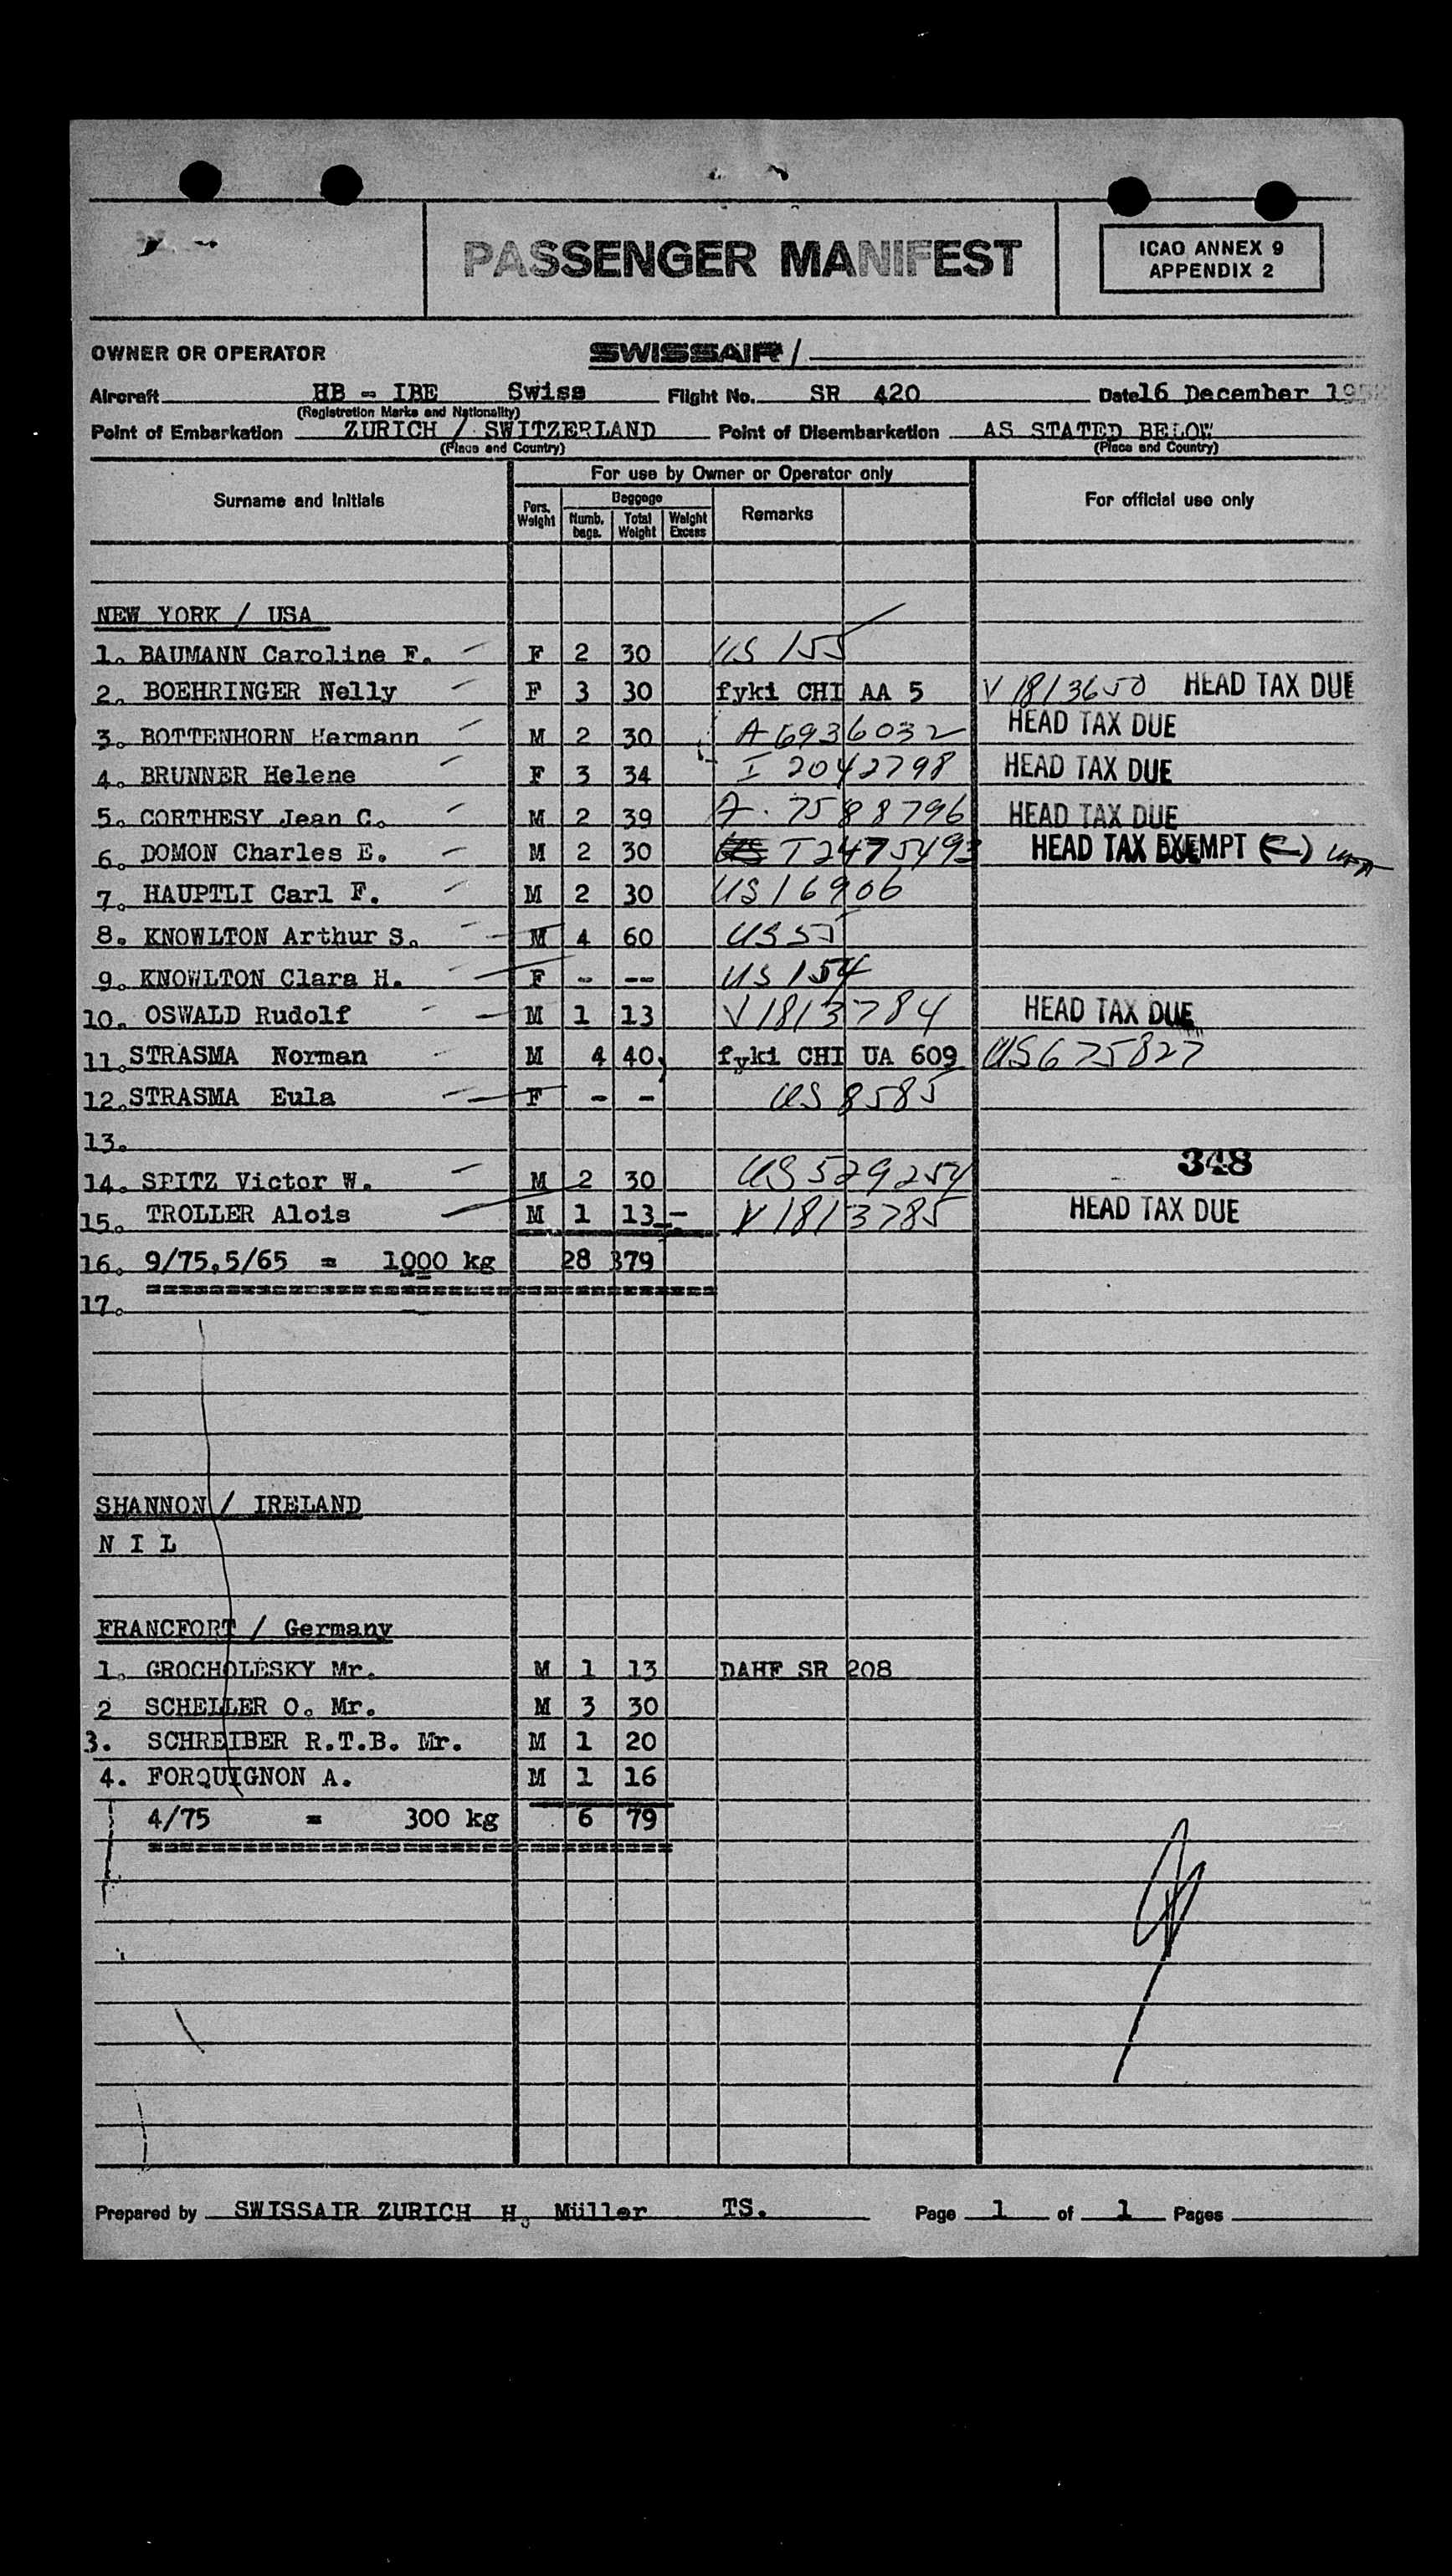 PASSENGER MANIFEST
ICAO ANNEX 9
APPENDIX 2
OWNER OR OPERATOR SWISSAIR /
Aircraft HB - IBE Swiss Flight No. SR 420 Date 16 December
(Registration Marks and Nationality)
Point of Embarkation ZURICH / SWITZERLAND Point of Disembarkation AS STATED BELOW
(Place and Country) (Place and Country)
For use by Owner or Operator only
Surname and Initials Pers. Weight Baggage Numb. bags. Total Weight Weight Excess Remarks For official use only
NEW YORK / USA
1. BAUMANN Caroline F. F 2 30 US 155
2. BOEHRINGER Nelly F 3 30 fyki CHI AA 5 V 1813650 HEAD TAX DUE
3. BOTTENHORN Hermann M 2 30 A 6936032 HEAD TAX DUE
4. BRUNNER Helene F 3 34 I 2042798 HEAD TAX DUE
5. CORTHESY Jean C. M 2 39 A. 7588796 HEAD TAX DUE
6. DOMON Charles E. M 2 30 T2475493 HEAD TAX EXEMPT
7. HAUPTLI Carl F. M 2 30 US 16906
8. KNOWLTON Arthur S. M 4 60 US 55
9. KNOWLTON Clara H. F - -- US 154
10. OSWALD Rudolf M 1 13 V 1813784 HEAD TAX DUE
11. STRASMA Norman M 4 40, fyki CHI UA 609 US 675827
12. STRASMA Eula F - - US 8585
13.
348
14. SPITZ Victor W. M 2 30 US 529254
15. TROLLER Alois M 1 13 - V 1813785 HEAD TAX DUE
16. 9/75,5/65 = 1000 kg 28 379
17.
SHANNON / IRELAND
N I L
FRANCFORT / Germany
1. GROCHOLESKY Mr. M 1 13 DAHF SR 208
2 SCHELLER O. Mr. M 3 30
3. SCHREIBER R.T.B. Mr. M 1 20
4. FORQUIGNON A. M 1 16
4/75 = 300 kg 6 79
Prepared by SWISSAIR ZURICH H. Müller TS. Page 1 of 1 Pages